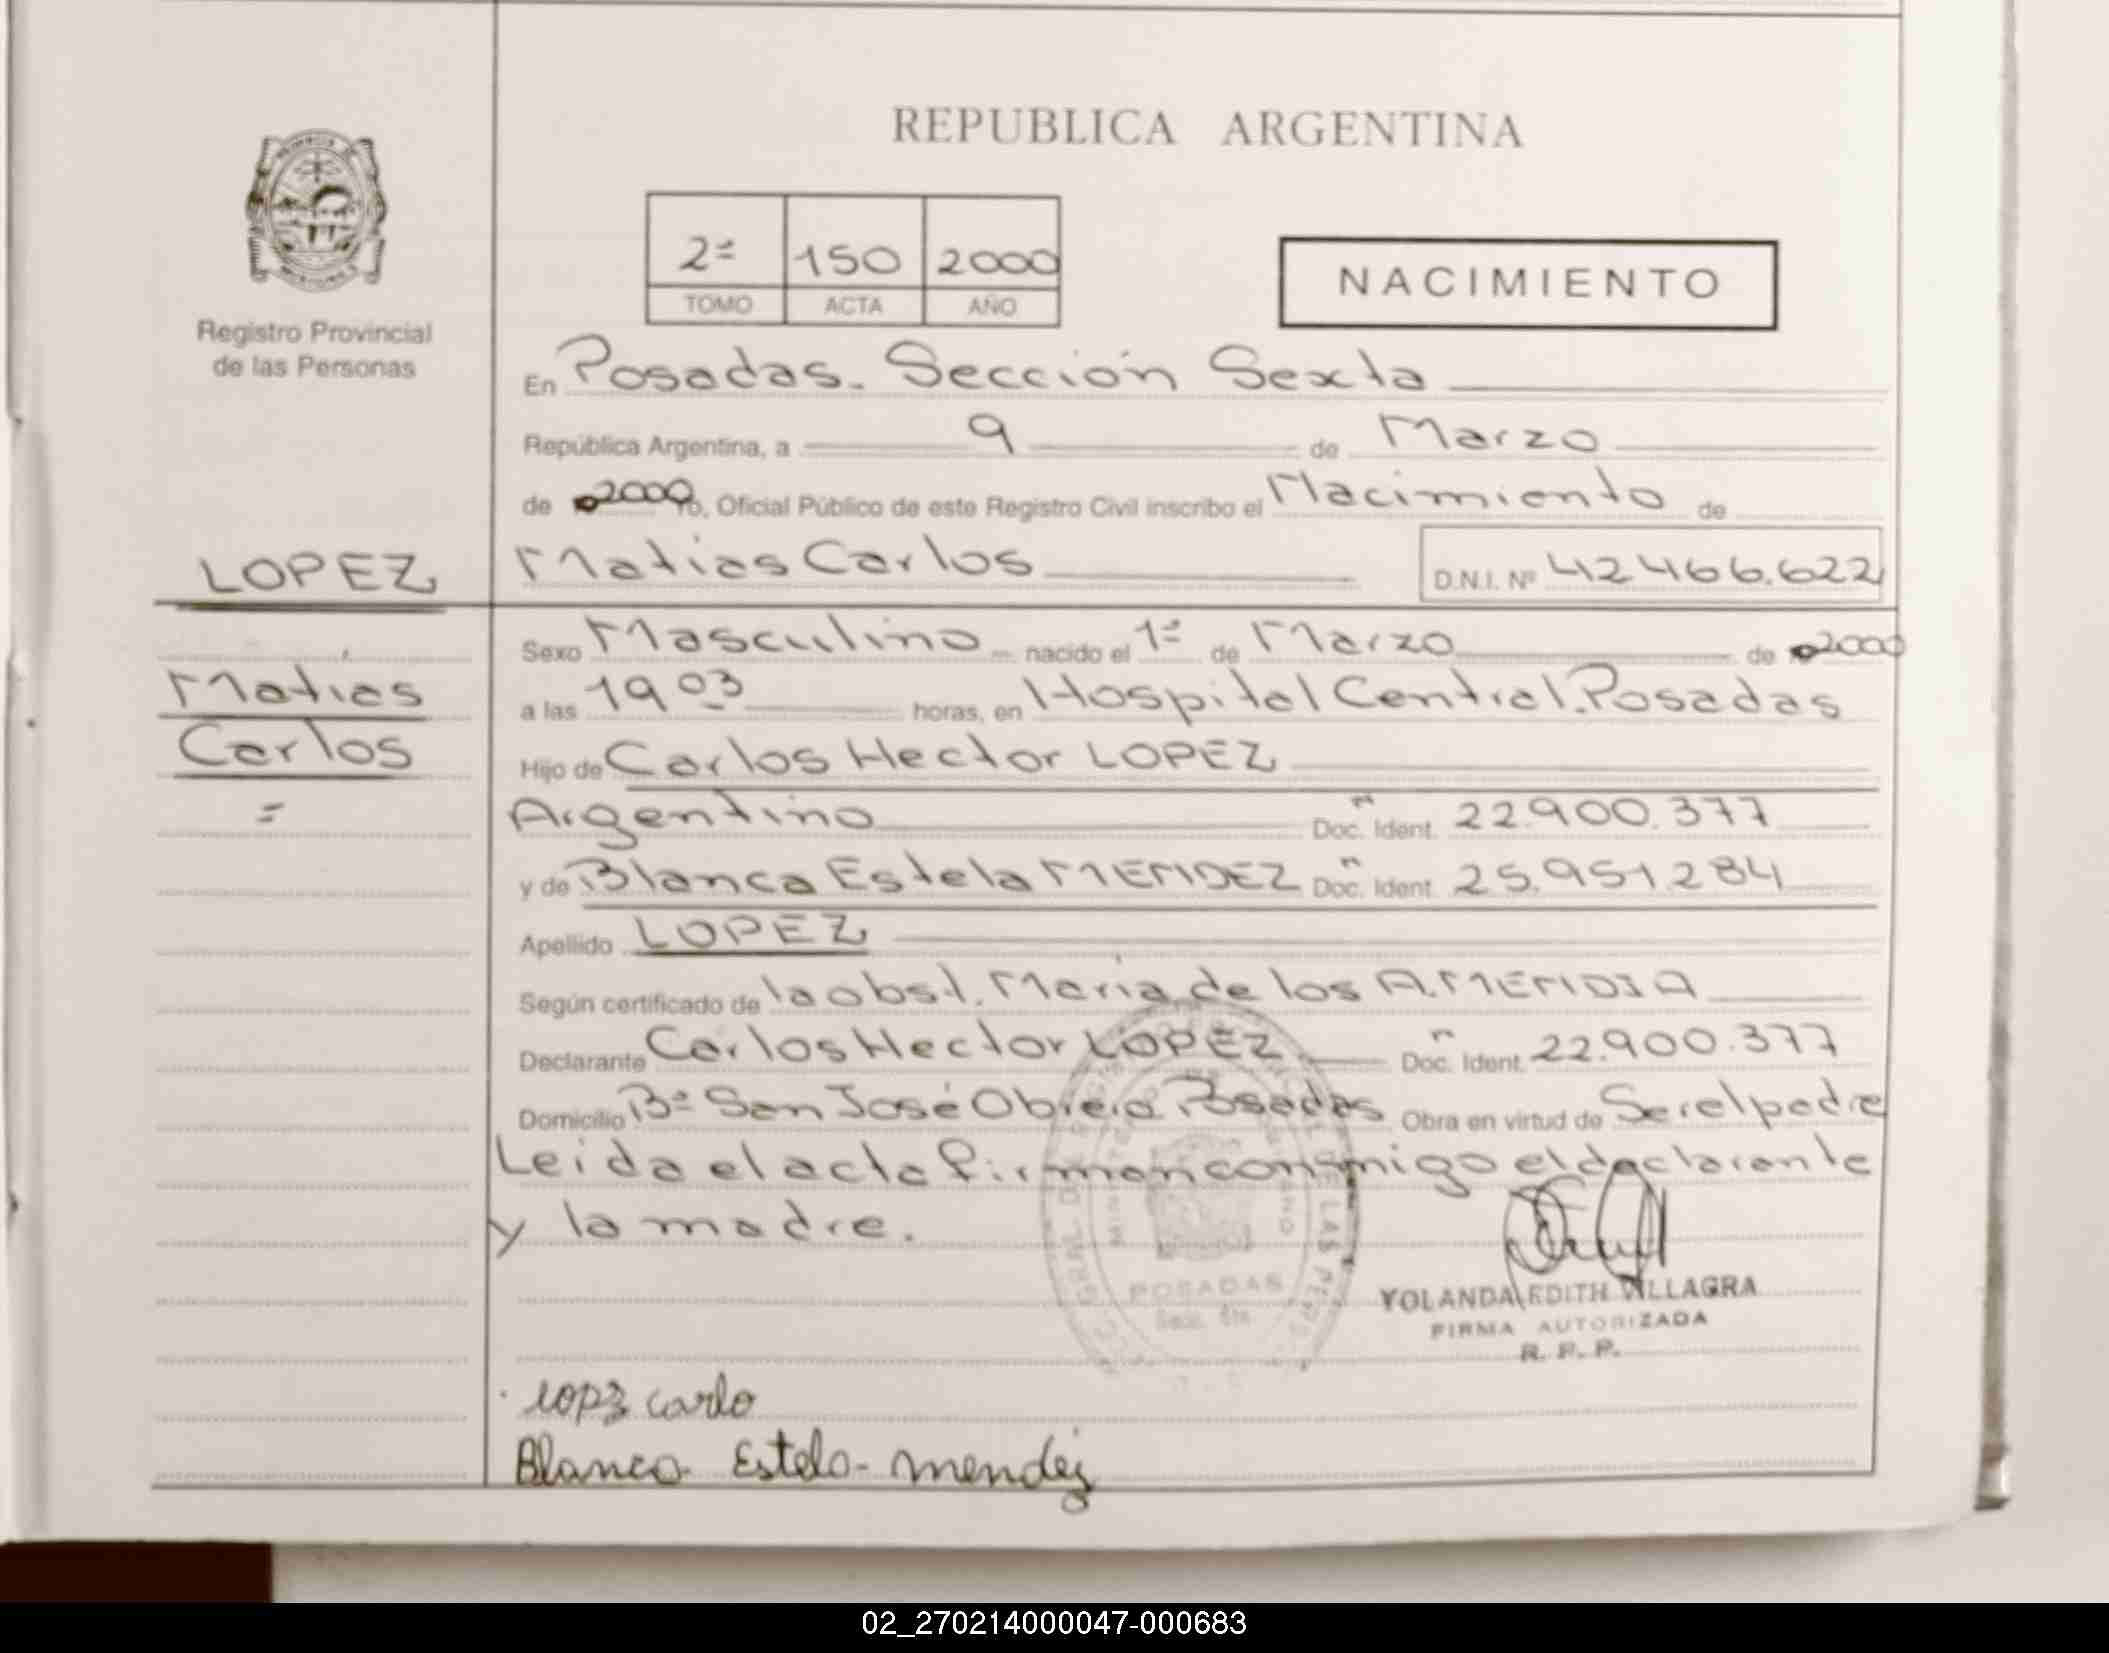 REPUBLICA ARGENTINA
2ª 150 2000
TOMO ACTA AÑO
NACIMIENTO
Registro Provincial
de las Personas
En Posadas. Sección Sexta
República Argentina, a 9 de Marzo
de 2000, Yo, Oficial Público de este Registro Civil inscribo el Nacimiento de
LOPEZ
Matias Carlos
D.N.I. Nº 42466.622
Matias
Carlos
=
Sexo Masculino nacido el 1º de Marzo de 2000
a las 19 03 horas, en Hospital Central. Posadas
Hijo de Carlos Hector LOPEZ
Argentino Doc. Ident. 22.900.377
y de Blanca Estela MENDEZ Doc. Ident. 25.951.284
Apellido LOPEZ
Según certificado de la obst. Maria de los A.
Declarante Carlos Hector LOPEZ Doc. Ident. 22.900.377
Domicilio Bº San José Obrero Posadas Obra en virtud de Ser el padre
Leida el acta firman conmigo el declarante
y la madre.
POSADAS
YOLANDA EDITH VILLAGRA
FIRMA AUTORIZADA
R. P. P.
lopz carlo
Blanca Estela mendez
02_270214000047-000683